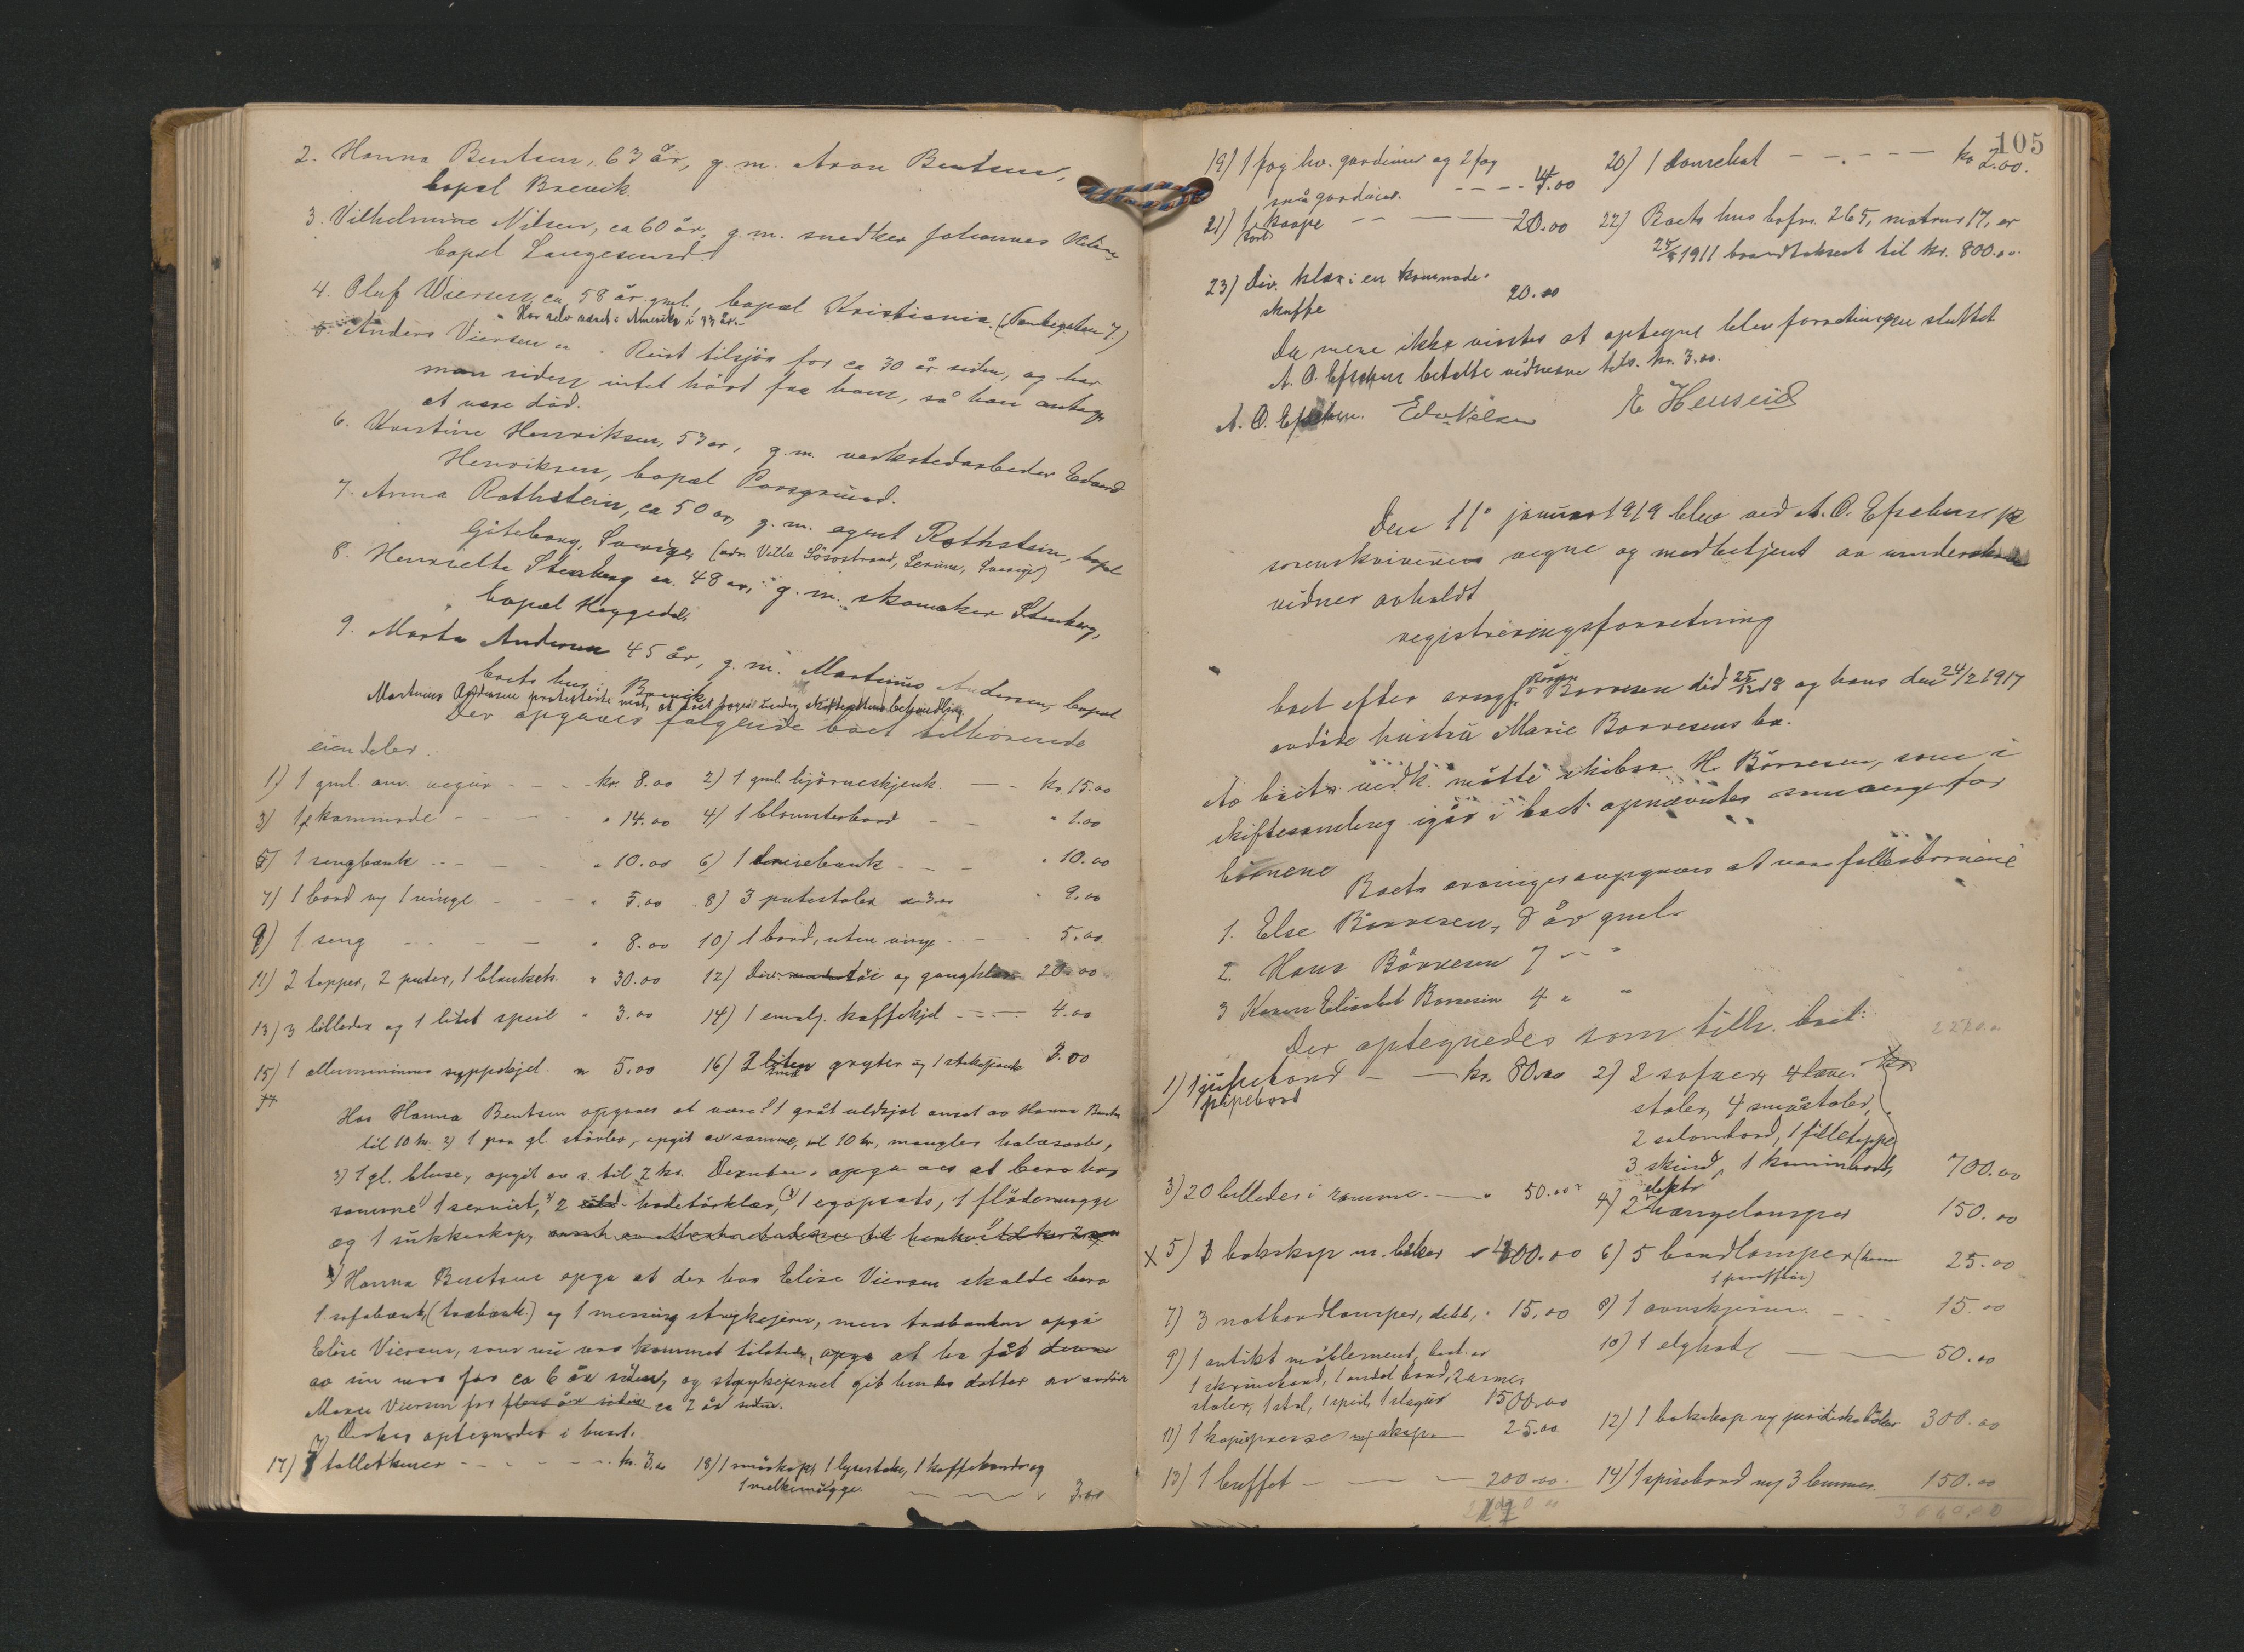 2. Hanna Bentsen, 63 år, g. m. Aron Bentsen,
bopæl Brevik
3. Vilhelmine Nilsen, ca 60 år, g. m. snedker Johannes Nilsen,
bopæl Langesund.
4. Oluf Wiersen, ca. 58 år gml., bopæl Kristiania.
Har selv været i Amerika i 33 år.
5. Anders Viersen Reist tilsjøs for ca 30 år siden, og har
man siden intet hørt fra ham, så han antages
at være død.
6. Kristine Henriksen, 53 år, g. m. verkstedarbeider Edvard
Henriksen, bopæl Porsgrund.
7. Anna Rothstein, ca 50 år, g. m. agent Rothstein, bopæl
Göteborg, Sverige, (adr. Villa Lerum, Sverige)
8. Henriette Stenberg ca. 48 år, g. m. skomaker Stenberg,
bopæl Heggedal.
9. Marta Andersen 45 år, g. m. Martinius Andersen, bopæl
boets hus, Brevik
Martinius Andersen protesterte mot, at boet toges under skifterettens behandling.
Der opgaves følgende boet tilhørende
eiendeler:
1) 1 gml. am. vegur - - - kr. 8.00 2) 1 gml. hjørneskjenk. - - kr. 15.00
3) 1 kommode - - - - " 14.00 4) 1 blomsterbord - - " 1.00
5) 1 sengbænk - - - " 10.00 6) 1 dreiebænk - - " 10.00
7) 1 bord og 1 vinge - - - " 5.00 8) 3 putestoler " 9.00
9) 1 seng - - - - " 8.00 10) 1 bord, uten vinge - - 5.00
11) 2 tepper, 2 puter, 1 blanksek. " 30.00 12) Div. tøi og gangklær 20.00
13) 3 billeder og 1 litet speil " 3.00 14) 1 emalj. kaffekjel - - - 4.00
15) 1 alluminiums suppekjel. " 5.00 16) 2 små gryter og 1 stekepande 3.00
Hos Hanna Bentsen opgaves at være: 1) 1 gråt uldsjal ansat av Hanna Bentsen
til 10 kr. 2) 1 par gl. støvler, opgit av samme, til 10 kr., mangler halvsåler,
3) 1 gl. bluse, opgit av s. til 2 kr. Desuten opga
samme 1) 1 serviet, 2) 2 hodetørklær, 3) 1 egopsats, 1 fløtemugge
og 1 sukkerkop,
Hanna Bentsen opga at der hos Elise Viersen skulde bero
1 sofabænk, (træbænk) og 1 messing strykejern, men træbænken opgå
Elise Viersen, som nu var kommet tilstede, opga at ha fåt denne
av sin mor for ca 6 år siden, og strykejernet git hendes datter av avdøde
Maren Viersen for flere år siden ca 2 år siden.
Derhos optegnedes i huset:
17) tallerkener - - - - - kr. 3.00 18) 1 1 lysestake, 1 kaffekande og
1 melkemugge. - - - " 3.00
105
19) 1 fag hv. gardiner og 2 fag
små gardiner. - - - - 4.00
20) 1 - - - - - kr 2.00.
21) 1 kaape - - - - 20.00
sort
22) Boets hus bofnr. 265, matrnr 17, er
1911 brandtaksert til kr. 800.00.
23) Div. klær i en kommode-
skuffe 20.00
Da mere ikke vistes at optegne blev forretningen sluttet
A. O. Efskeen betalte vidnerne tils. kr. 3.00.
A. O. Edv. Nilsen
Den 11. januar 1919 blev ved A. O.
sorenskriverens vegne og medbetjent av underskrevne
vidner avholdt
registreringsforretning
boet efter Børresen død 25/12 18 og hans den 24/2 1917
avdøde hustru Marie Børresens bo.
På boets vedk. møtte skibsr. H. Børresen, som i
skiftesamling igår i boet opnævntes som verge for
børnene
Boets arvinger opgaves at være fællesbørnene
1. Else Børresen, 8 år gml.
2. Hans Børresen 7 " - "
3 Karen Elisabet Børresen 4 " "
Der optegnedes som tilh. boet:
1) 1 - - kr. 80.00
pipebord
2) 2 sofaer, 4 læne-
stoler, 4 småstoler,
2 salonbord, 1 filletæppe
3 skind, 1 kaminbord, 700.00
3) 20 billeder i ramme. - " 50.00
4) 2 elektr hængelamper 150.00
x 5) 3 bokskap m. bøker " 400.00
6) 5 bordlamper (hvorav
1 paraffin) 25.00
7) 3 natbordlamper, elektr., " 15.00
8) 1 ovnskjerm. - - - 15.00
9) 1 antikt møblement, best. av
1 skrivebord, 1 andet bord, 2 arme-
stoler, 1 stol, 1 speil, 1 slagur 1500.00
10) 1 elghode - - 50.00
11) 1 kopipresse 25.00
12) 1 bokskap og juridiske bøker 300.00
13) 1 buffet - - - 200.00.
14) 1 spisebord og 3 lemmer. 150.00